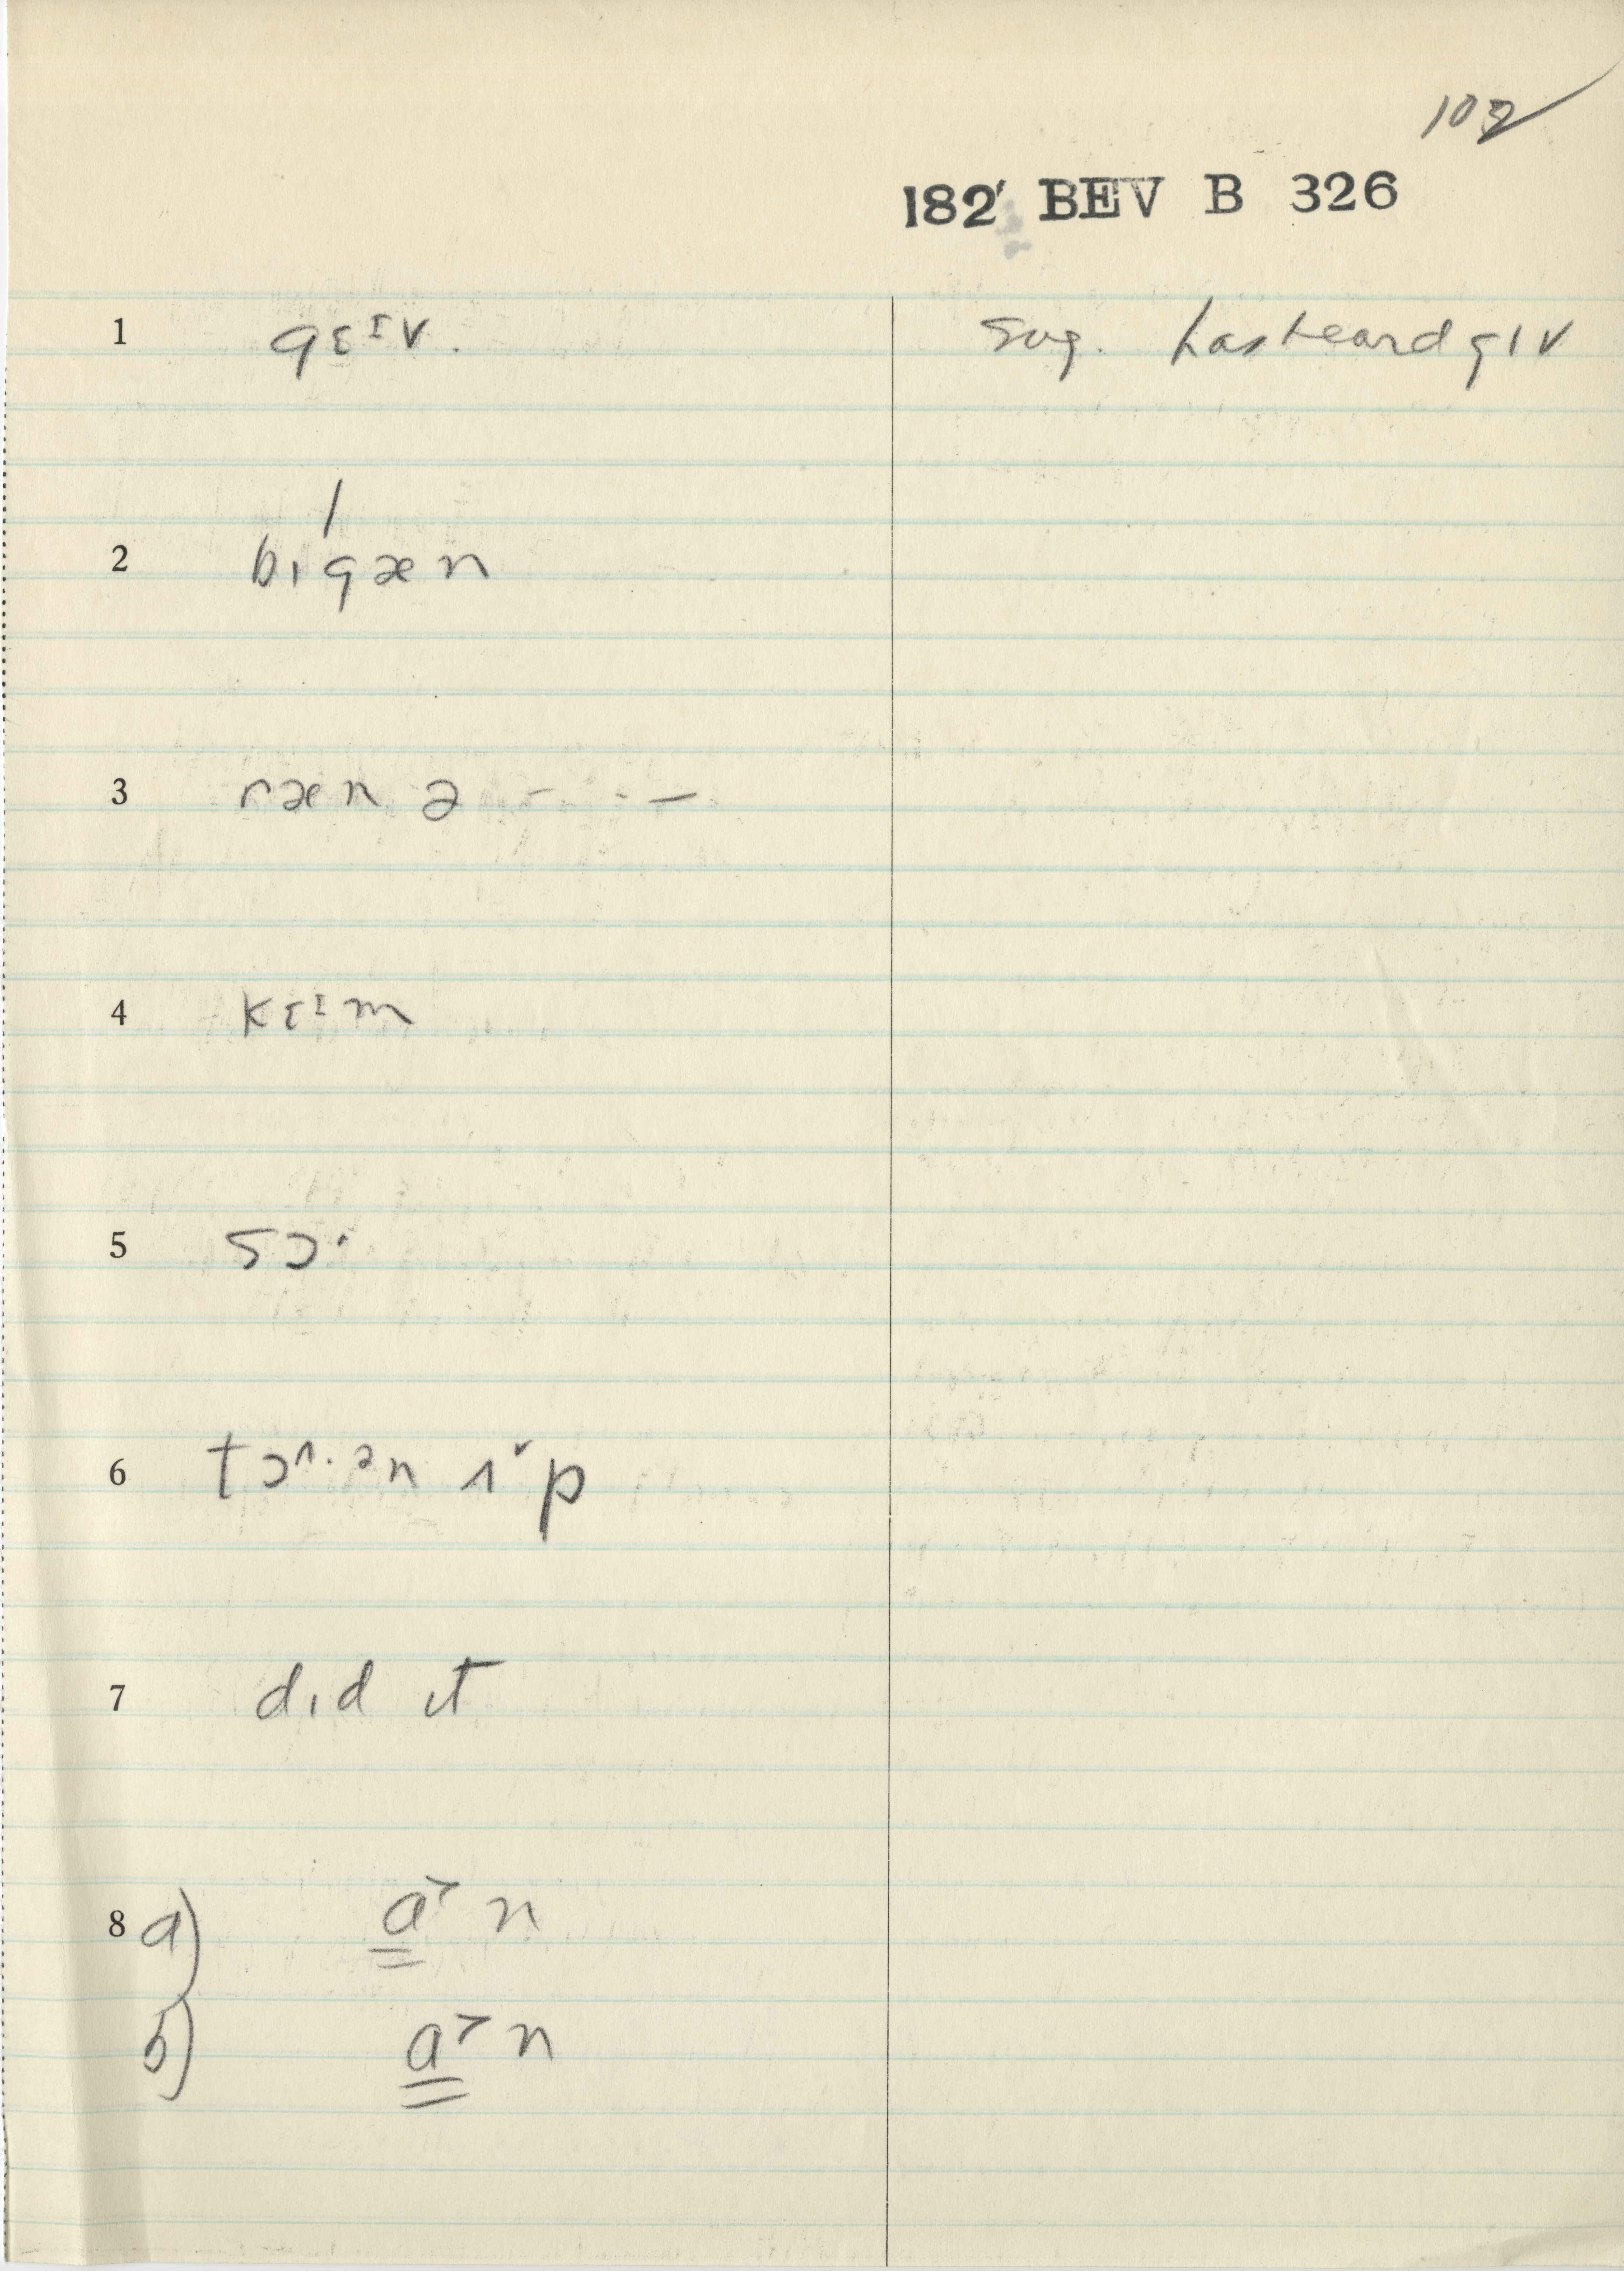 102
182 BEV B 326
1 gɛᴵv. Sug. has heard gɪv
2 bɪgæn
3 ræn ə - - - —
4 kɛᴵm
5 sɔ·
6 tɔʌ·ən ʌ˅p
7 dɪd ɪt
8 a) a˃ n
b) a˃ n